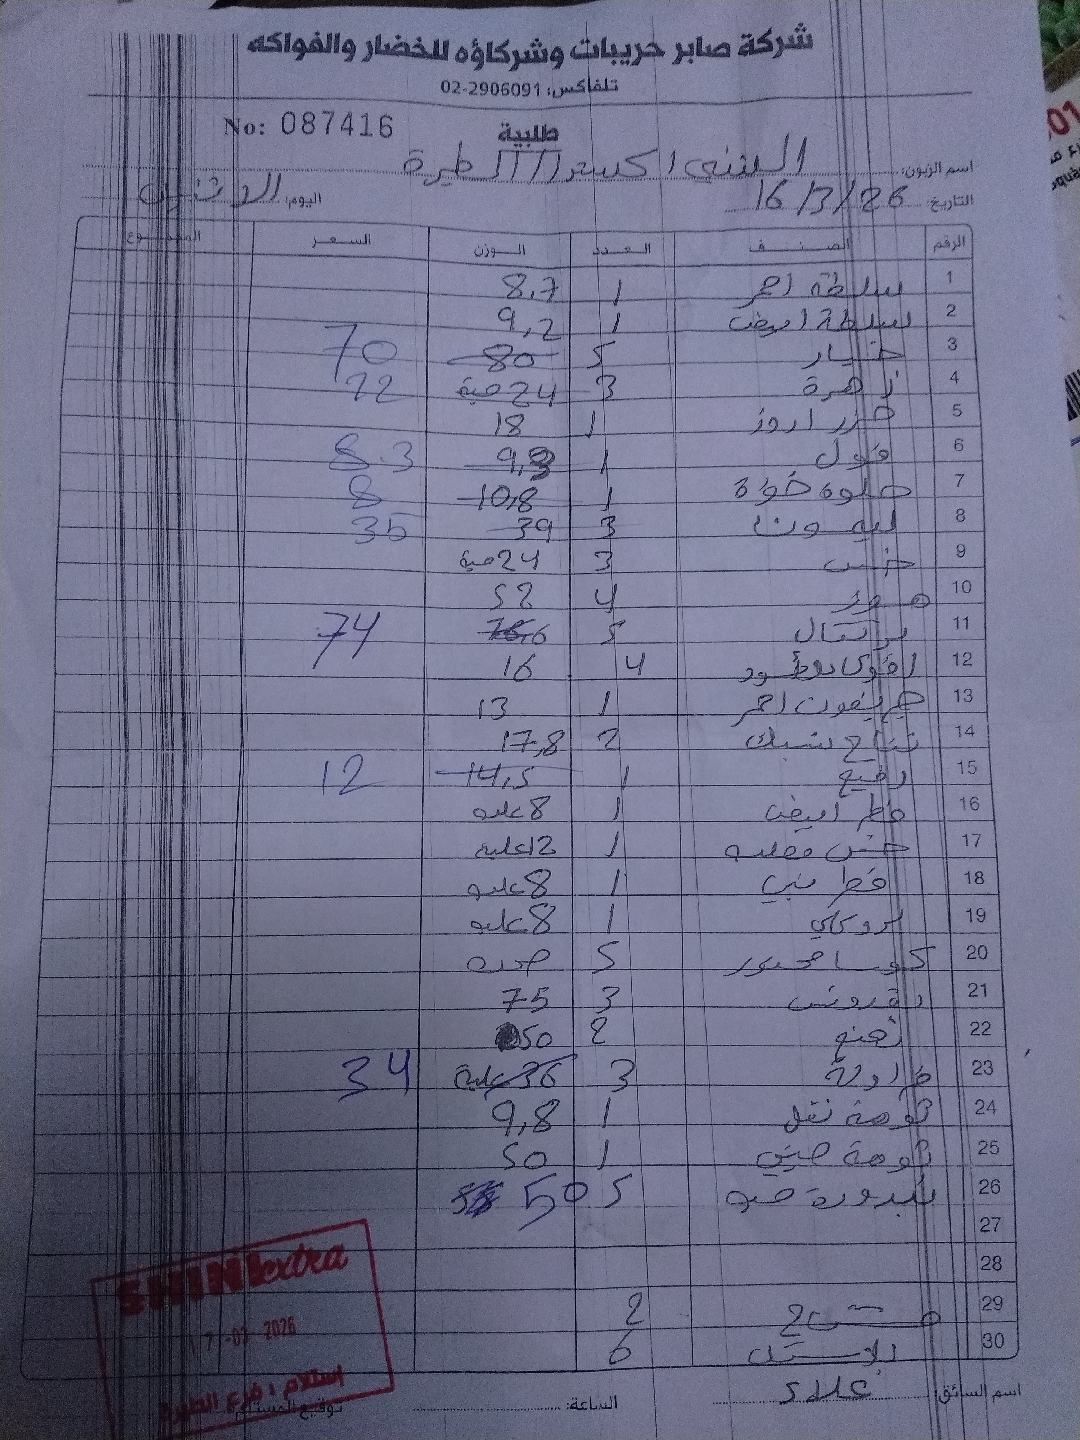 شركة صابر حريبات وشركاؤه للخضار والفواكه
تلفاكس: 02-2906091
No: 087416
طلبية
اسم الزبون: الشني اكسترا / الطيرة
التاريخ: 16/3/26 اليوم: الاثنين
الرقم الصنف العدد الوزن السعر المجموع
1 سلطة احمر 1 8,7
2 سلطة ابيض 1 9,2
3 خيار 5 80 70
4 زهرة 3 24 حبة 22
5 جزر اروز 1 18
6 فول 1 9,3 8.3
7 حلوة 1 10,8 8
8 ليمون 3 39 35
9 خس 3 24 حبة
10 موز 4 52
11 برتقال 5 76,6 74
12 افوكادو اسود 4 16
13 جريفون احمر 1 13
14 تفاح شبك 2 17,8
15 1 14,5 12
16 فطر ابيض 1 8 علبه
17 خس معلبه 1 12 علبه
18 فطر بني 1 8 علبه
19 بروكلي 1 8 علبه
20 كوسا 5
21 بقدونس 3 75
22 نعنع 2 50
23 فراولة 3 36 علبة 34
24 ثومة نقل 1 9,8
25 ثومة صيني 1 50
26 بندورة 5 50
27
28
29 مشتاح 2
30 بلاستك 6
اسم السائق: علاء الساعة: توقيع المستلم
SHINI extra
17-03-2026
استلام: فرع الطيرة